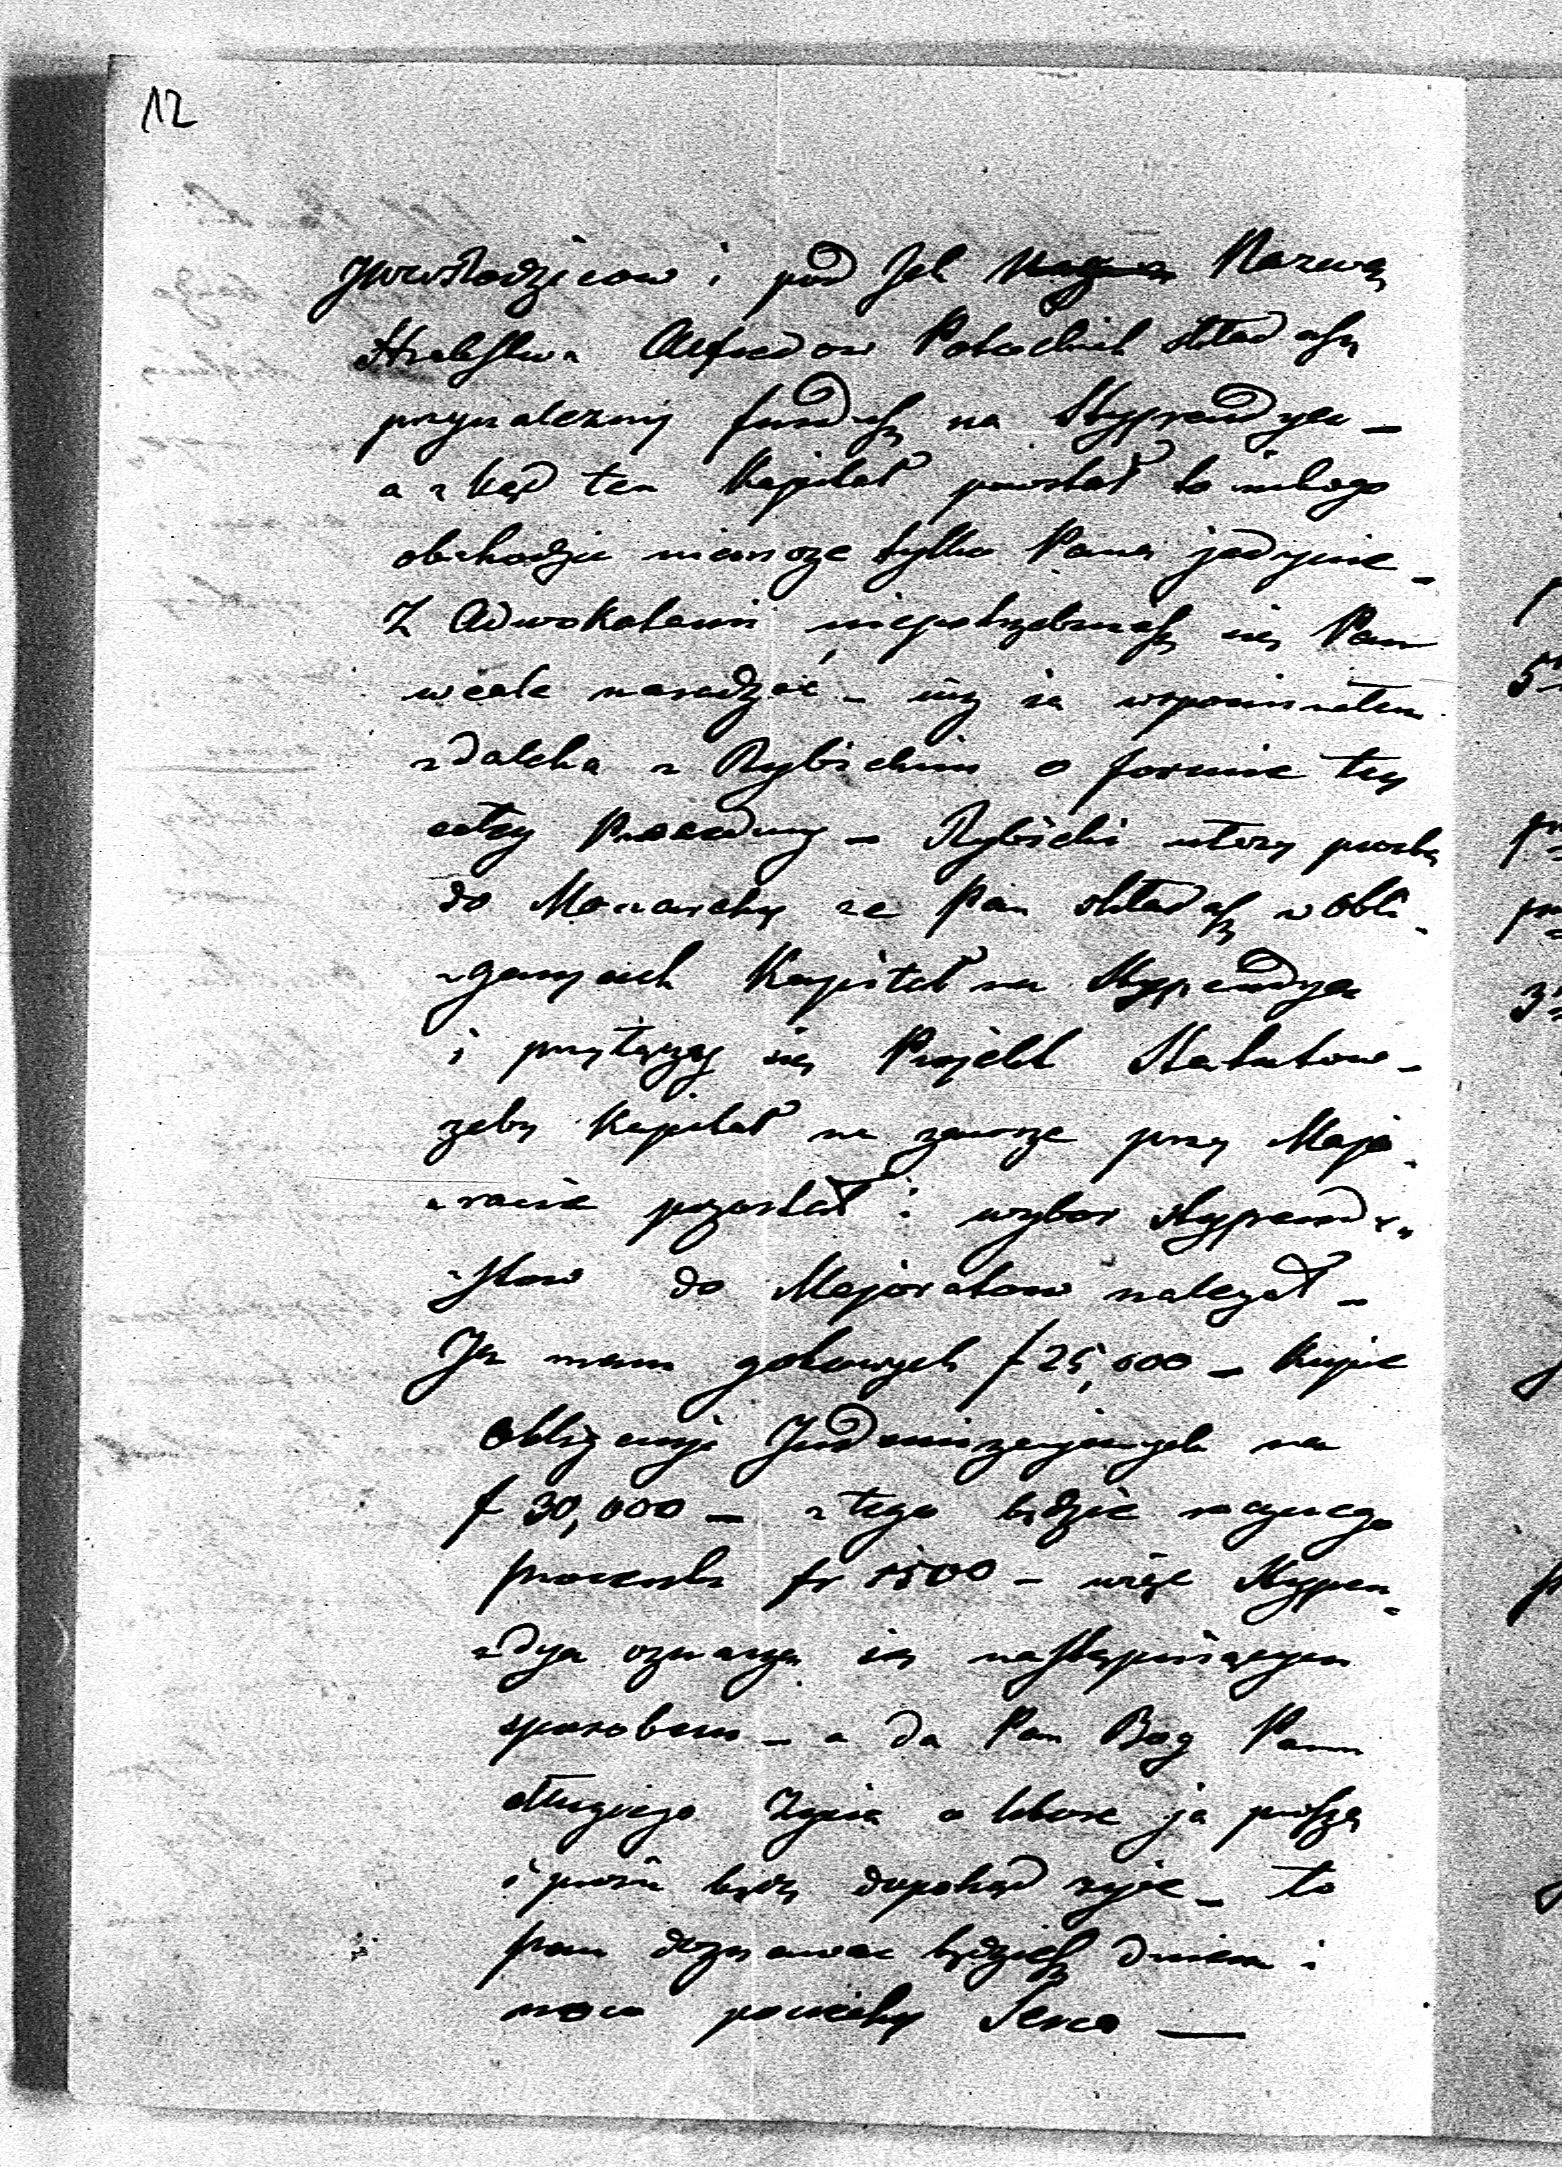 12
JWW Rodzicow i pod Jch Nazwą
Hrabstwa Alfredow Potockich składasz
przynalezny fundusz na Stypendya –
a zkąd ten Kapitał powstał to nikogo
obchodzic niemoze tylko Pana jedynie –
Z Adwokatami niepotrzebujesz się Pan
wcale naradzać – już ia wspominałem
zdaleka z Rybickim o formie tey
całey – Rybicki ułozy prozbę
do Monarchy ze Pan składasz w obli-
-gacyach Kapitał na Stypendya
i przyłączy się Projekt Statutow –
zeby Kapitał na zawsze przy Majo-
-racie pozostał i wybor stypendy-
-stow do Majoratow nalezał –
Ja mam gotowych f 25,000 – Kupie
Obligacyi Indemnizacyjnych na
f 30,000 – z tego będzie rocznego
procentu fr 1500 – więc Stypen-
-dya oznaczą się następuiącym
sposobem – a da Pan Bog Panu
długiego Zycia o ktore ja proszę
i prosić będę dopokąd zyje – to
pan doznawac będziesz dniem i
noca pociechy Serca —